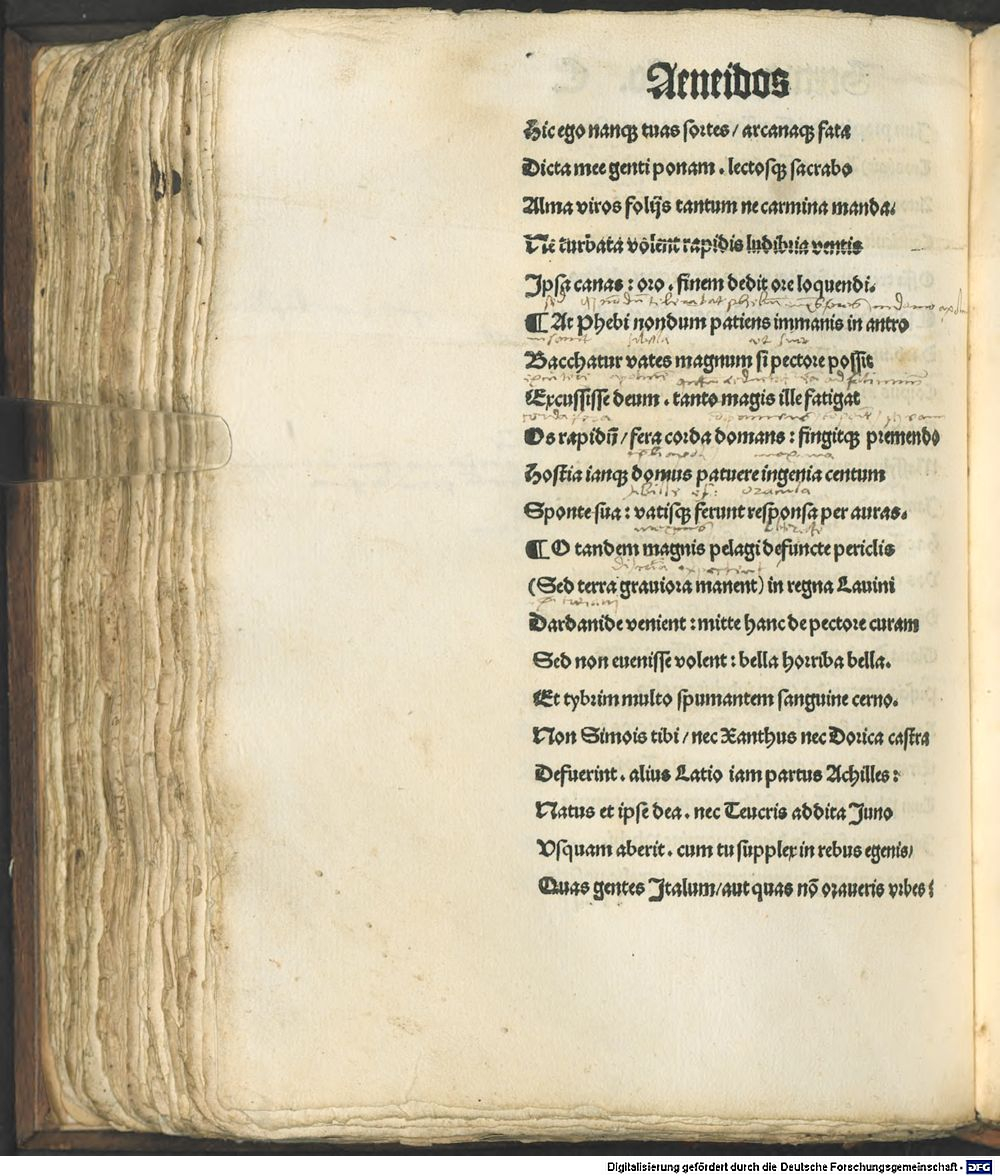 Aeneidos
Hic ego nanqꝫ tuas sortes / arcanaqꝫ fata
Dicta mee genti ponam . lectosqꝫ sacrabo
Alma viros folijs tantum ne carmina manda.
Ne turbata volent rapidis ludibria ventis
Ipsa canas : oro . finem dedit ore loquendi.
¶ At Phebi nondum patiens immanis in antro
Bacchatur vates magnum si pectore possit
Excussisse deum . tanto magis ille fatigat
Os rapidū / fera corda domans : fingitqꝫ premendo
Hostia ianqꝫ domus patuere ingenia centum
Sponte sua : vatisqꝫ ferunt responsa per auras.
¶ O tandem magnis pelagi defuncte periclis
(Sed terra grauiora manent) in regna Lauini
Dardanide venient : mitte hanc de pectore curam
Sed non euenisse volent : bella horriba bella.
Et tybrim multo spumantem sanguine cerno.
Non Simois tibi / nec Xanthus nec Dorica castra
Defuerint . alius Latio iam partus Achilles :
Natus et ipse dea . nec Teucris addita Juno
Vsquam aberit . cum tu supplex in rebus egenis/
Quas gentes Italum/aut quas nō oraueris vrbes :
Digitalisierung gefördert durch die Deutsche Forschungsgemeinschaft - DFG